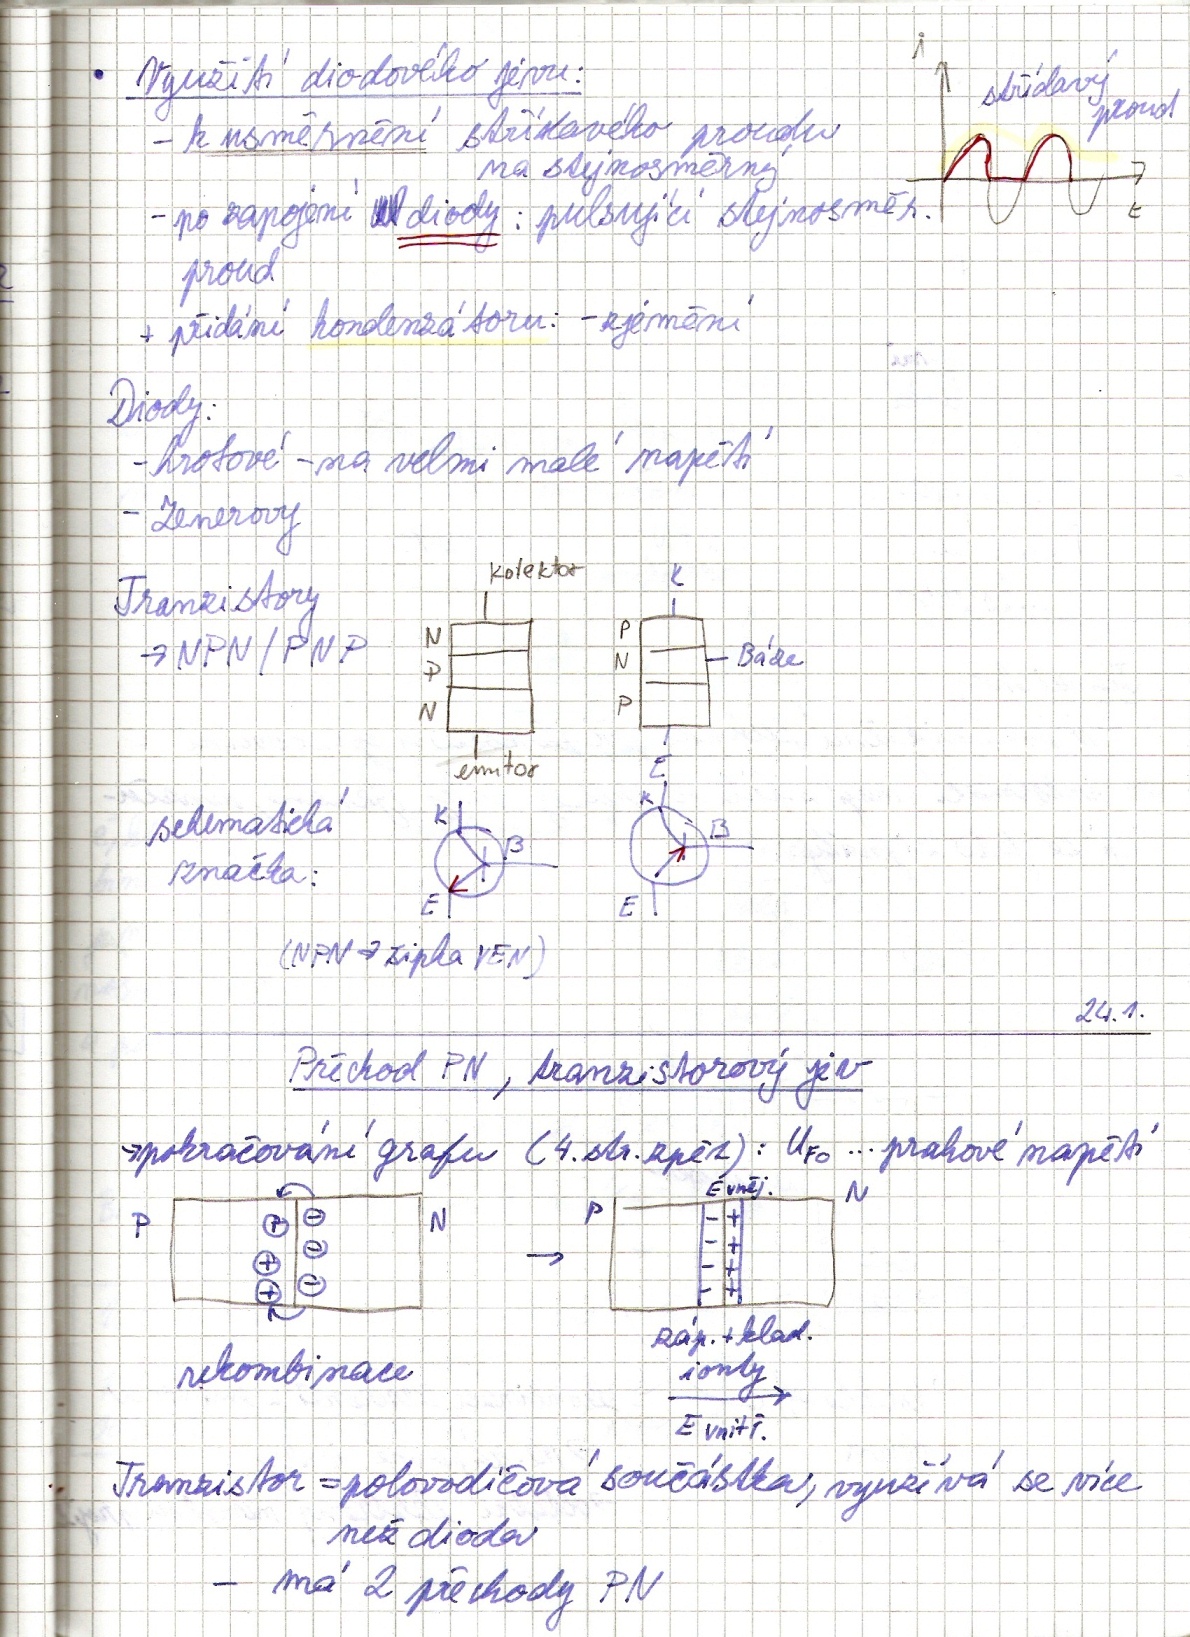 • Využití diodového jevu:
i
střídavý
proud
t
- k usměrnění střídavého proudu
na stejnosměrný
- po zapojení diody: pulsující stejnosměr.
proud
+ přidání kondenzátoru: - zjemnění
Diody:
- hrotové - na velmi malé napětí
- Zenerovy
Tranzistory
→ NPN / PNP
kolektor
N
P
N
emitor
K
P
N
P
Báze
E
schematická
značka:
K
B
E
K
B
E
(NPN → šipka VEN)
24.1.
Přechod PN, tranzistorový jev
→ pokračování grafu (4. str. zpět): U_F0 ... prahové napětí
P
+ -
+ -
+ -
N
→
P
E vněj.
N
- +
- +
- +
- +
rekombinace
záp. + klad.
ionty
E vnitř.
Tranzistor = polovodičová součástka, využívá se více
než dioda
- má 2 přechody PN